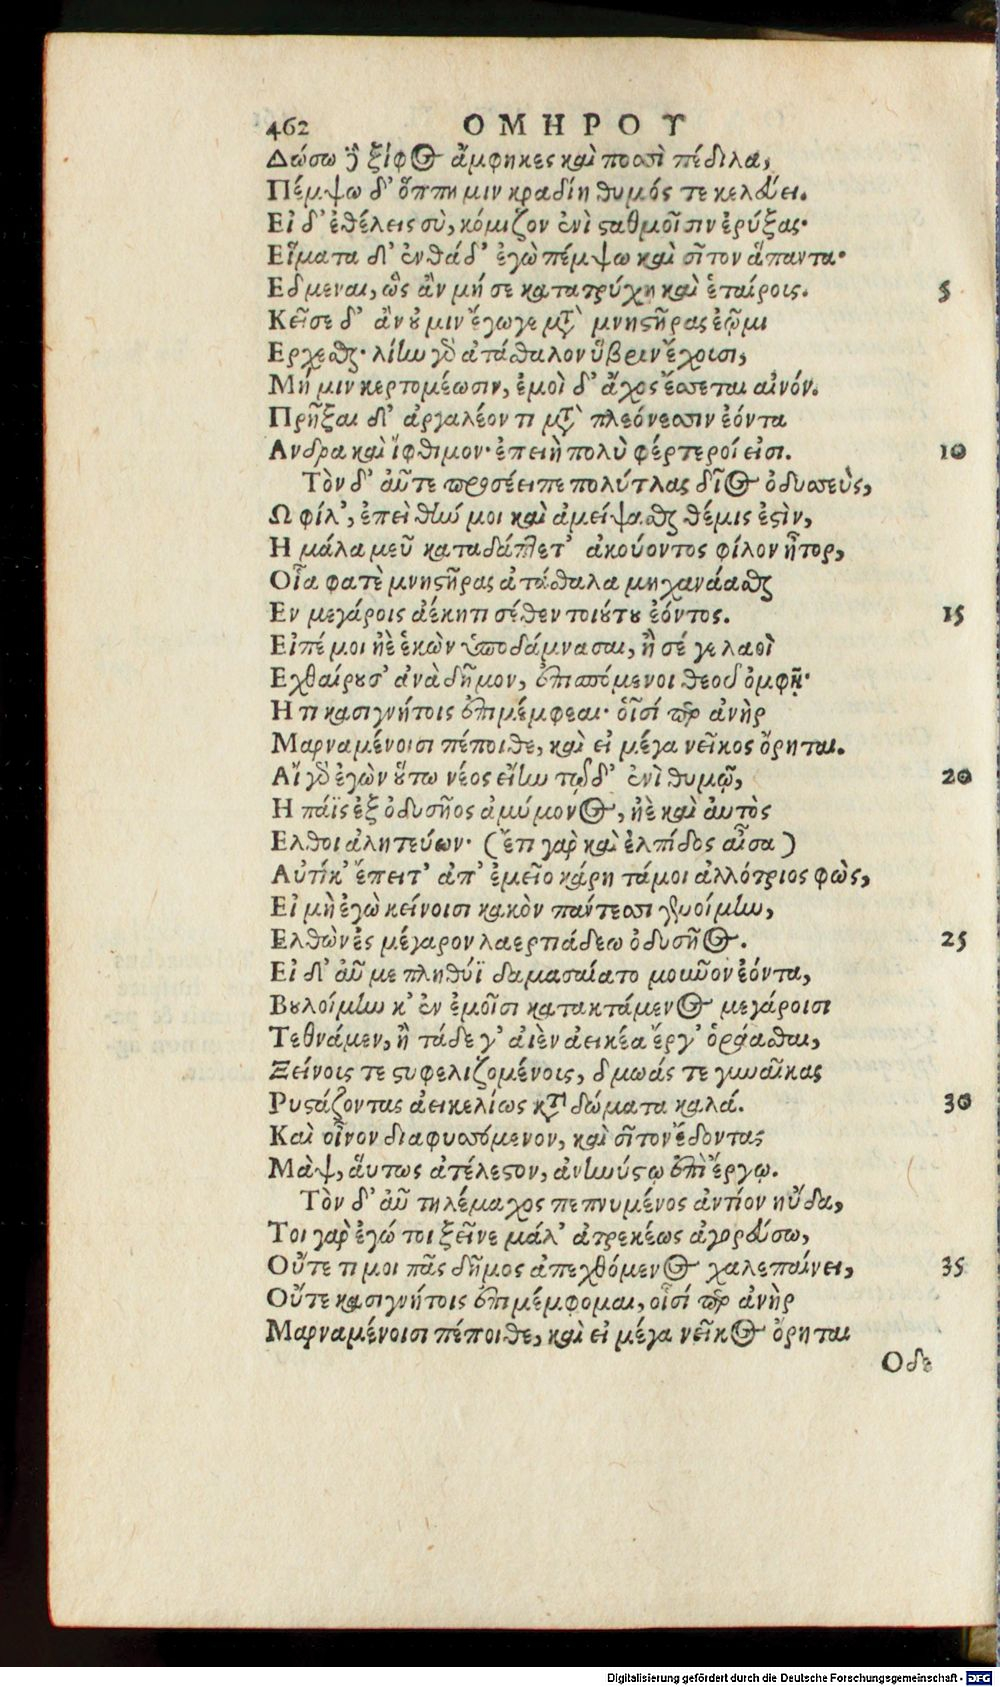 462 ΟΜΗΡΟΥ
Δώσω δὲ ξίφος ἄμφηκες καὶ ποσσὶ πέδιλα,
Πέμψω δ' ὅππη μιν κραδίη θυμός τε κελεύει.
Εἰ δ' ἐθέλεις σὺ, κόμιζον ἐνὶ σταθμοῖσιν ἐρύξας·
Εἵματα δ' ἐνθάδ' ἐγὼ πέμψω καὶ σῖτον ἅπαντα·
Εδμεναι, ὣς ἂν μή σε κατατρύχῃ καὶ ἑταίροις. 5
Κεῖσε δ' ἂν οὔ μιν ἔγωγε μετὰ μνηστῆρας ἐῷμι
Ερχεσθαι· λίην γὰρ ἀτάσθαλον ὕβριν ἔχουσι,
Μή μιν κερτομέωσιν, ἐμοὶ δ' ἄχος ἔσσεται αἰνόν.
Πρῆξαι δ' ἀργαλέον τι μετὰ πλεόνεσσιν ἐόντα
Ανδρα καὶ ἴφθιμον· ἐπειὴ πολὺ φέρτεροί εἰσι. 10
Τὸν δ' αὖτε προσέειπε πολύτλας δῖος ὀδυσσεὺς,
Ω φίλ', ἐπεὶ θήν μοι καὶ ἀμείψασθαι θέμις ἐστὶν,
Η μάλα μεῦ καταδάπτετ' ἀκούοντος φίλον ἦτορ,
Οἷα φατὲ μνηστῆρας ἀτάσθαλα μηχανάασθαι
Εν μεγάροις ἀέκητι σέθεν τοιούτου ἐόντος. 15
Εἰπέ μοι ἠὲ ἑκὼν ὑποδάμνασαι, ἢ σέ γε λαοὶ
Εχθαίρουσ' ἀνὰ δῆμον, ἐπισπόμενοι θεοῦ ὀμφῇ·
Η τι κασιγνήτοις ἐπιμέμφεαι· οἷσί περ ἀνὴρ
Μαρναμένοισι πέποιθε, καὶ εἰ μέγα νεῖκος ὄρηται.
Αἲ γὰρ ἐγὼν οὕτω νέος εἴην τῷδ' ἐνὶ θυμῷ, 20
Η πάϊς ἐξ ὀδυσῆος ἀμύμονος, ἠὲ καὶ αὐτὸς
Ελθοι ἀλητεύων· (ἔτι γὰρ καὶ ἐλπίδος αἶσα)
Αὐτίκ' ἔπειτ' ἀπ' ἐμεῖο κάρη τάμοι ἀλλότριος φὼς,
Εἰ μὴ ἐγὼ κείνοισι κακὸν πάντεσσι γενοίμην,
Ελθὼν ἐς μέγαρον λαερτιάδεω ὀδυσῆος. 25
Εἰ δ' αὖ με πληθύϊ δαμασαίατο μοῦνον ἐόντα,
Βουλοίμην κ' ἐν ἐμοῖσι κατακτάμενος μεγάροισι
Τεθνάμεν, ἢ τάδε γ' αἰὲν ἀεικέα ἔργ' ὁράασθαι,
Ξείνους τε στυφελιζομένους, δμωάς τε γυναῖκας
Ρυστάζοντας ἀεικελίως κατὰ δώματα καλά. 30
Καὶ οἶνον διαφυσσόμενον, καὶ σῖτον ἔδοντας
Μὰψ, αὕτως ἀτέλεστον, ἀνηνύστῳ ἐπὶ ἔργῳ.
Τὸν δ' αὖ τηλέμαχος πεπνυμένος ἀντίον ηὔδα,
Τοι γὰρ ἐγώ τοι ξεῖνε μάλ' ἀτρεκέως ἀγορεύσω,
Οὔτε τι μοι πᾶς δῆμος ἀπεχθόμενος χαλεπαίνει, 35
Οὔτε κασιγνήτοις ἐπιμέμφομαι, οἷσί περ ἀνὴρ
Μαρναμένοισι πέποιθε, καὶ εἰ μέγα νεῖκος ὄρηται
Οδε
Digitalisierung gefördert durch die Deutsche Forschungsgemeinschaft - DFG